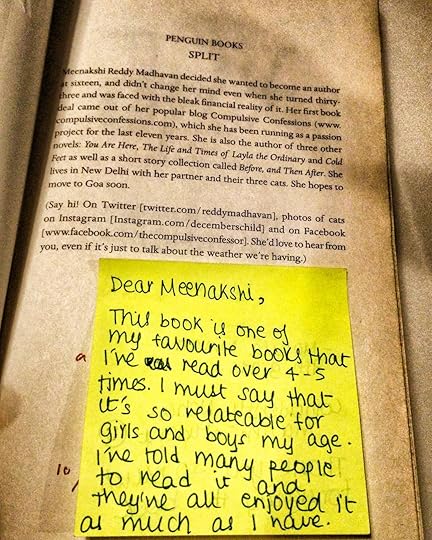 PENGUIN BOOKS
SPLIT
Meenakshi Reddy Madhavan decided she wanted to become an author
at sixteen, and didn't change her mind even when she turned thirty-
three and was faced with the bleak financial reality of it. Her first book
deal came out of her popular blog Compulsive Confessions (www.
compulsiveconfessions.com), which she has been running as a passion
project for the last eleven years. She is also the author of three other
novels: You Are Here, The Life and Times of Layla the Ordinary and Cold
Feet as well as a short story collection called Before, and Then After. She
lives in New Delhi with her partner and their three cats. She hopes to
move to Goa soon.
(Say hi! On Twitter [twitter.com/reddymadhavan], photos of cats
on Instagram [Instagram.com/decemberschild] and on Facebook
[www.facebook.com/thecompulsiveconfessor]. She'd love to hear from
you, even if it's just to talk about the weather we're having.)
Dear Meenakshi,
This book is one of
my favourite books that
I've read over 4-5
times. I must say that
it's so relateable for
girls and boys my age.
I've told many people
to read it and
they've all enjoyed it
as much as I have.
a
10